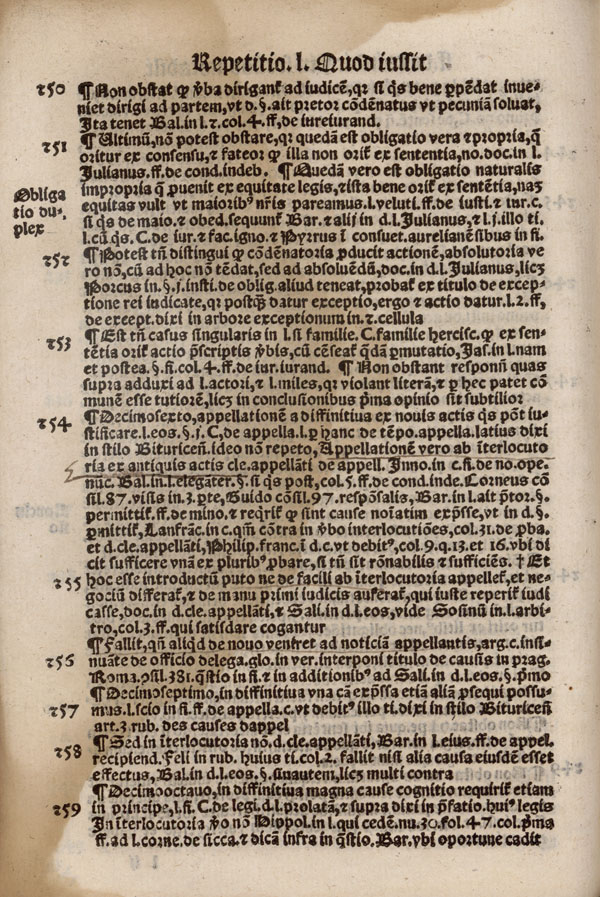 Repetitio. l. Quod iussit
250 ¶ Non obstat ꝙ v̄ba dirigant̄ ad iudicē, qr si q̄s bene ꝑpēdat inue-
niet dirigi ad partem, vt d. §. ait pretor cōdēnatus vt pecuniā soluat,
Ita tenet Bal. in l. 2. col. 4. ff. de iureiurand.
251 ¶ Ultimū, nō potest obstare, qr quedā est obligatio vera ⁊ propria, q̄
oritur ex consensu, ⁊ fateor ꝙ illa non orit̄ ex sententia, no. doc. in l.
Julianus. ff. de cond. indeb. ¶ Quedam vero est obligatio naturalis
Obliga
tio du-
plex
impropria q̄ ꝓuenit ex equitate legis, ⁊ ista bene orit̄ ex sentētia, naꝫ
equitas vult vt maiorib⁹ nr̄is pareamus. l. veluti. ff. de iusti. ⁊ iur. c.
si q̄s de maio. ⁊ obed. sequunt̄ Bar. ⁊ alij in d. l. Julianus, ⁊ l. j. illo ti.
l. cū q̄s. C. de iur. ⁊ fac. igno. ⁊ Pyrrus ī consuet. aurelianēsibus in fi.
252 ¶ Potest tn̄ distingui ꝙ cōdēnatoria ꝓducit actionē, absolutoria ve
ro nō, cū ad hoc nō tēdat, sed ad absoluēdū, doc. in d. l. Julianus, licꝫ
Porcus in. §. j. insti. de oblig. aliud teneat, probat̄ ex titulo de excep-
tione rei iudicate, qr postq̄ꝫ datur exceptio, ergo ⁊ actio datur. l. 2. ff.
de except. dixi in arbore exceptionum in. ⁊ cellula
253 ¶ Est tn̄ casus singularis in l. si familie. C. familie hercisc. ꝙ ex sen-
tētia orit̄ actio p̄scriptis v̄bis, cū cēseat̄ q̄dā ꝑmutatio, Jas. in l. nam
et postea. §. fi. col. 4. ff. de iur. iurand. ¶ Non obstant responsī quas
supra adduxi ad l. actori, ⁊ l. miles, qr violant literā, ⁊ ꝑ hec patet cō
munē esse tutiorē, licꝫ in conclusionibus p̄ma opinio sit subtilior
254 ¶ Decimosexto, appellationē a diffinitiua ex nouis actis q̄s pōt iu-
stificare. l. eos. §. j. C. de appella. l. ꝑ hanc de tēpo. appella. latius dixi
in stilo Bituricen̄. ideo nō repeto, Appellationē vero ab īterlocuto
ria ex antiquis actis cle. appellāti de appell. Inno. in c. fi. de no. ope.
nūc. Bal. in l. elegāter. §. si q̄s post, col. 5. ff. de cond. inde. Corneus cō
sil. 87. visis in 3. ꝑte, Guido cōsil. 97. respōsalis, Bar. in l. ait p̄tor. §.
permittit̄. ff. de mino. ⁊ req̄rit̄ ꝙ sint cause notatim exp̄sse, vt in d. §.
ꝑmittit̄, Lanfrāc. in c. qm̄ cōtra in v̄bo interlocutiōes, col. 31. de ꝓba.
et d. cle. appellāti, Philip. franc. ī d. c. vt debit⁹, col. 9. q. 13. et 16. vbi di
cit sufficere vnā ex plurib⁹ ꝓbare, si tn̄ sit rōnabilis ⁊ sufficiēs. † Et
255 hoc esse introductū puto ne de facili ab īterlocutoria appellet̄, et ne-
gociū differat̄, ⁊ de manu primi iudicis auferat̄, qui iuste reperit̄ iudi
casse, doc. in d. cle. appellāti, ⁊ Sali. in d. l. eos, vide Sosinū in. l. arbi-
tro, col. 3. ff. qui satisdare cogantur
256 ¶ Fallit, qn̄ aliqd de nouo venit̄et ad noticiā appellantis, arg. c. insi-
nuāte de officio delega. glo. in ver. interponi titulo de causis in prag.
Roma. ꝯsil. 381. q̄stio in fi. ⁊ in additionib⁹ ad Sali. in d. l. eos. §. p̄mo
257 ¶ Decimoseptimo, in diffinitiua vna cā exp̄ssa etiā aliā ꝓsequi possu-
mus. l. scio in fi. ff. de appella. c. vt debit⁹ illo ti. dixi in stilo Bituricen̄
art. 3 rub. des causes dappel
258 ¶ Sed in īterlocutoria nō. d. cle. appellāti, Bar. in l. eius. ff. de appel.
recipiend. Feli in rub. huius ti. col. 2. fallit nisi alia causa eiusdē esset
effectus, Bal. in d. l. eos. §. Suautem, licꝫ multi contra
259 ¶ Decimooctauo, in diffinitiua magna cause cognitio requirit̄ etiam
in principe, l. fi. C. de legi. d. l. prolatā, ⁊ supra dixi in p̄fatio. hui⁹ legis
In īterlocutoria v̄o nō Hippol. in l. qui cedē. nu. 30. fol. 47. col. p̄ma
ff. ad l. corne. de sicca. ⁊ dicā infra in q̄stio. Bar. vbi oportune cadit